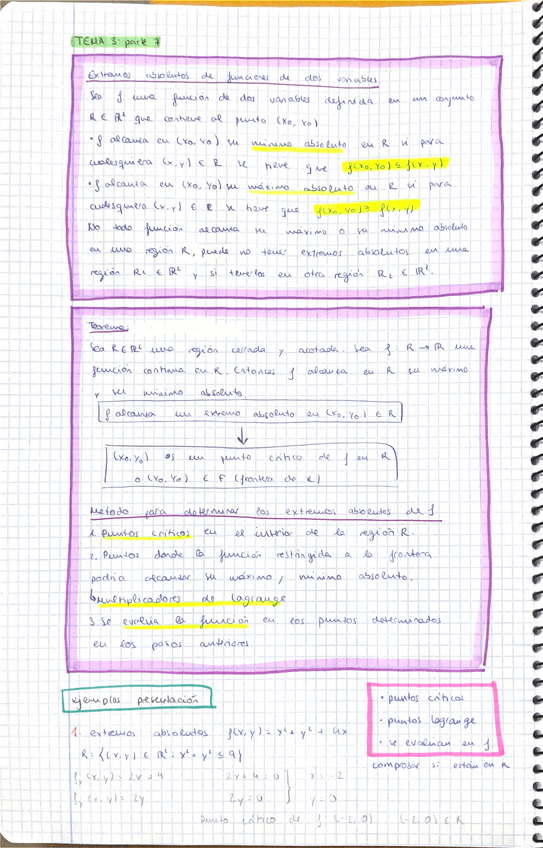 TEMA 3: parte 7
Extremos absolutos de funciones de dos variables
Sea f una función de dos variables definida en un conjunto
R ∈ ℝ² que contiene al punto (x₀, y₀)
• f alcanza en (x₀, y₀) su mínimo absoluto en R si para
cualesquiera (x, y) ∈ R se tiene que f(x₀, y₀) ≤ f(x, y)
• f alcanza en (x₀, y₀) su máximo absoluto en R si para
cualesquiera (x, y) ∈ R se tiene que f(x₀, y₀) ≥ f(x, y)
No toda función alcanza su máximo o su mínimo absoluto
en una región R, puede no tener extremos absolutos en una
región R₁ ∈ ℝ² y si tenerlos en otra región R₂ ∈ ℝ².
Teorema:
Sea R ∈ ℝ² una región cerrada y acotada. Sea f: R → ℝ una
función continua en R. Entonces f alcanza en R su máximo
y su mínimo absoluto
f alcanza un extremo absoluto en (x₀, y₀) ∈ R
↓
(x₀, y₀) es un punto crítico de f en R
o (x₀, y₀) ∈ F (frontera de R)
Método para determinar los extremos absolutos de f
1. Puntos críticos en el interior de la región R.
2. Puntos donde la función restringida a la frontera
podría alcanzar su máximo, mínimo absoluto.
↳ multiplicadores de Lagrange
3. Se evalúa la función en los puntos determinados
en los pasos anteriores
ejemplos presentación
• puntos críticos
• puntos lagrange
• se evalúan en f
comprobar si están en R
1. extremos absolutos f(x, y) = x² + y² + 4x
R = {(x, y) ∈ ℝ² : x² + y² ≤ 9}
fₓ(x, y) = 2x + 4 2x + 4 = 0 } x = -2
fᵧ(x, y) = 2y 2y = 0 } y = 0
Punto crítico de f: (-2, 0) (-2, 0) ∈ R